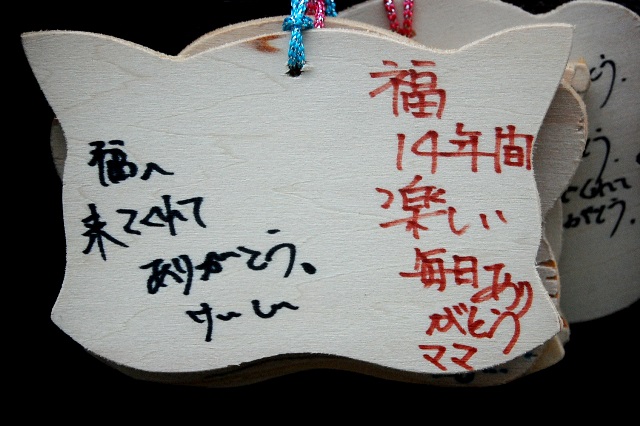 福
14年間
楽しい
毎日あり
がとう
ママ
福へ
来てくれて
ありがとう。
けいしい
とう。
くれて